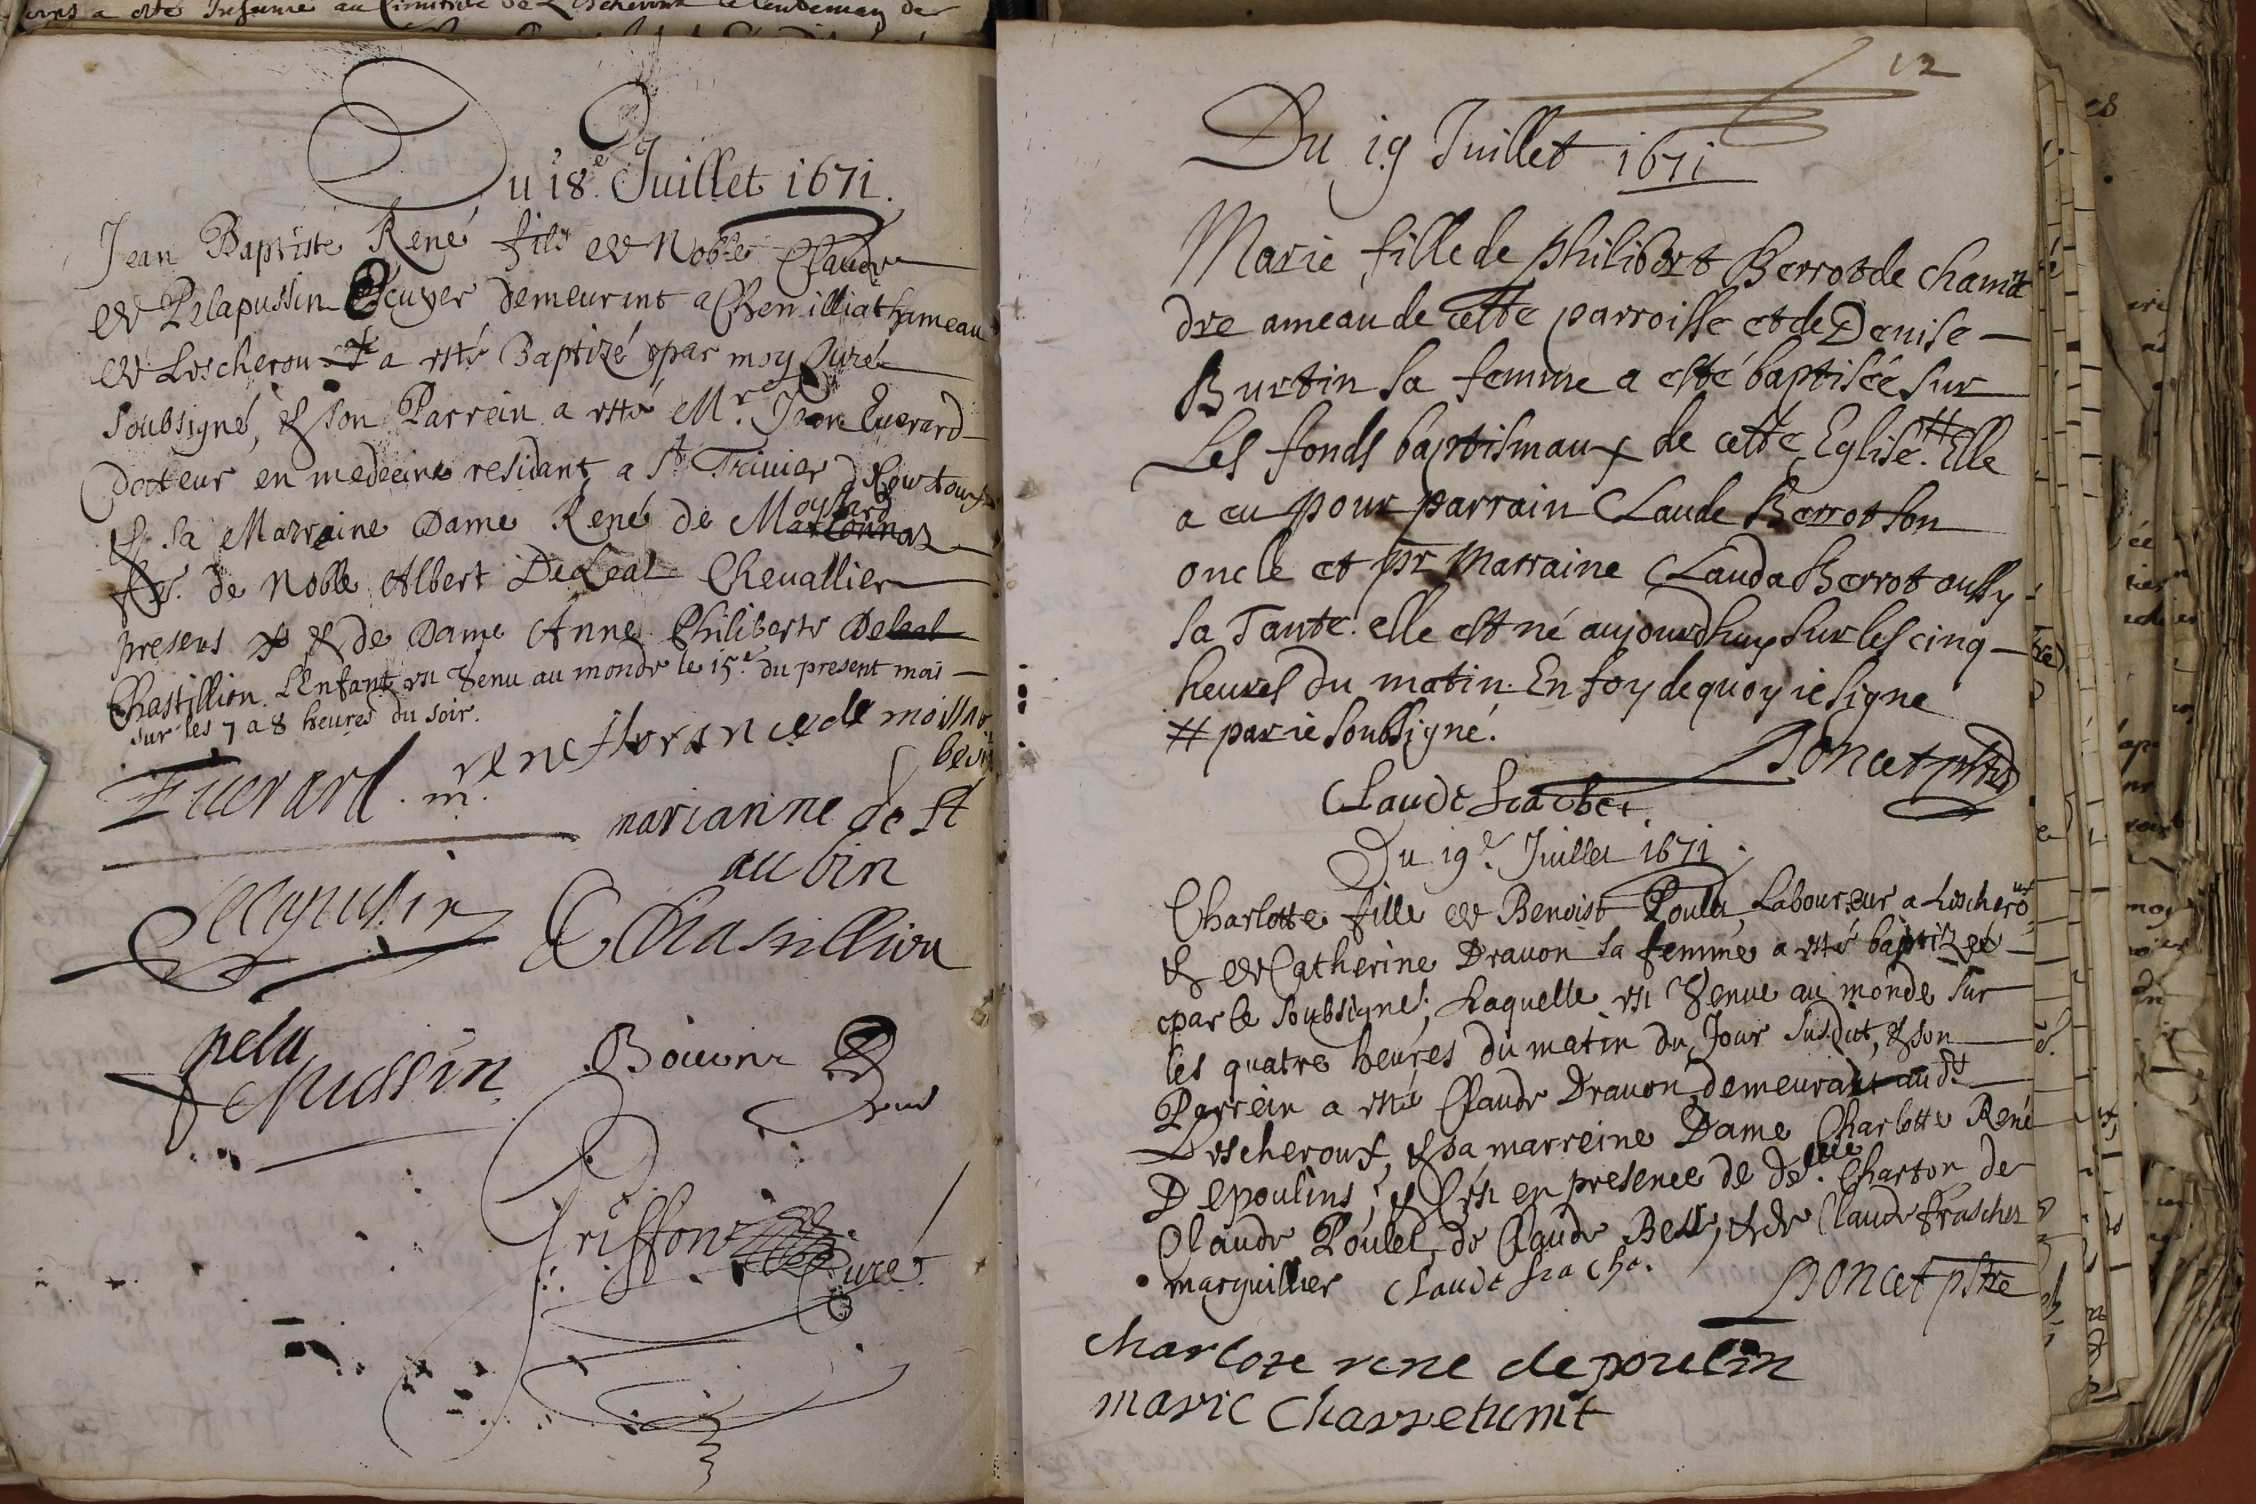 Du 18e Juillet 1671.
Jean Baptiste René fils de Noble Claude
de Pelapussin Escuyer demeurant a Chevilliat hameau
de Lescheroux a esté Baptizé par moy Curé
soubsigné, & son Parrein a esté Mr. Jean Euerard
docteur en medecine residant a St. Triuier de Courtoux
& sa Marraine Dame René de Moysard
fe. de Noble Albert DeLeal Cheuallier
presens & de Dame Anne Philiberte Deleal
Chastillion. L'Enfant est Venu au monde le 15e. du present mois
sur les 7 a 8 heures du soir.
Euerard . m. rene florance de moissar
marianne de st
aubin
Chastillion
pela
pussin
Griffon Curé
12
Du 19 Juillet 1671
Marie fille de philibert Berrot de chama
dre ameau de cette parroisse et de Denise
Burtin sa femme a esté baptisée sur
Les fonds baptismaux de cette Eglise # Elle
a eu pour parrain Claude Berrot son
oncle et pr Marraine Clauda Berrot aussy
sa Tante. elle est né aujourdhuy sur les cinq
heures du matin. En foy de quoy ie signe
# par ie soubsigné.
Poncet pstre
Claude frachet
Du 19e. Juillet 1671.
Charlotte fille de Benoist Poulet, Laboureur a Lescheroux
& de Catherine Drauon sa femme a esté baptizée
par le soubsigné; Laquelle est Venue au monde sur
les quatre heures du matin du Jour susdict, & son
Parrein a esté Claude Drauon demeurant audt
Lescheroux, & sa marreine Dame Charlotte René
Depoulins, & c'est en presence de delle. Charton de
Claude Poulet, de Claude Bett, & de Claude frascher
marguillier Claude frache.
Poncet pstre
charlote rene de poulin
marie Charretunt